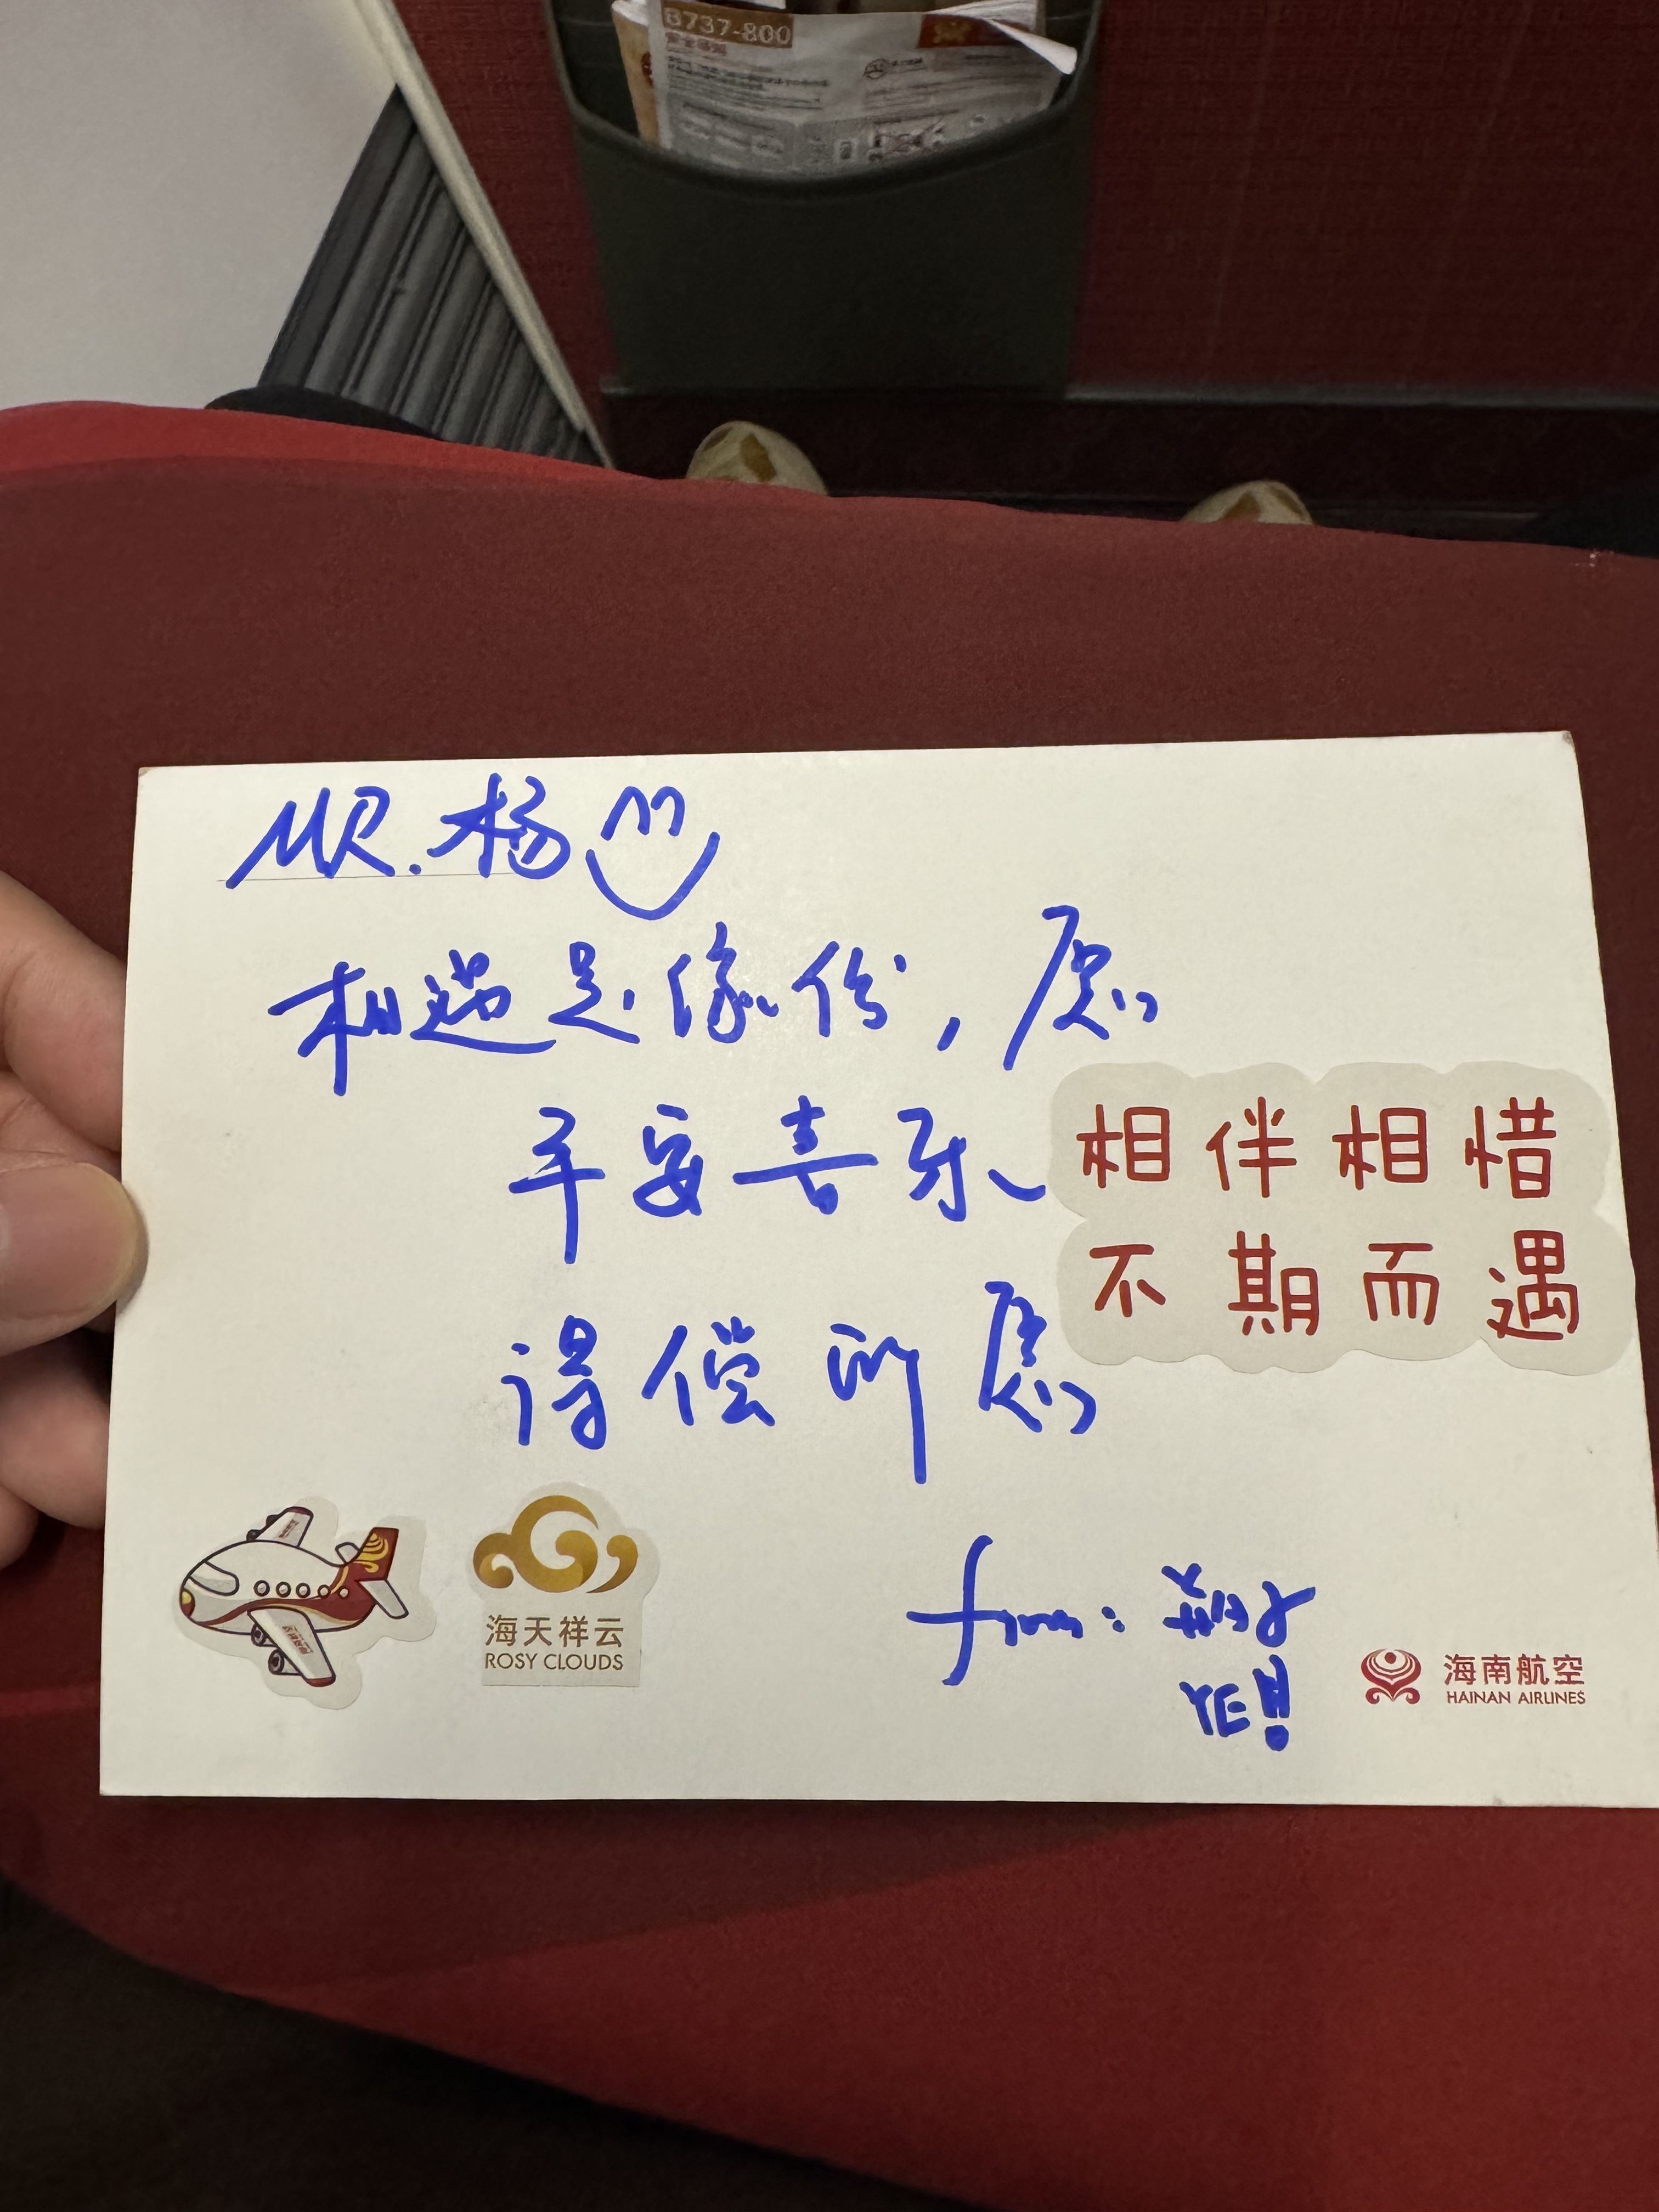 B737-800
MR.杨
相遇是缘份，愿
平安喜乐
相伴相惜
不期而遇
得偿所愿
海天祥云
ROSY CLOUDS
from:
YE!!
海南航空
HAINAN AIRLINES